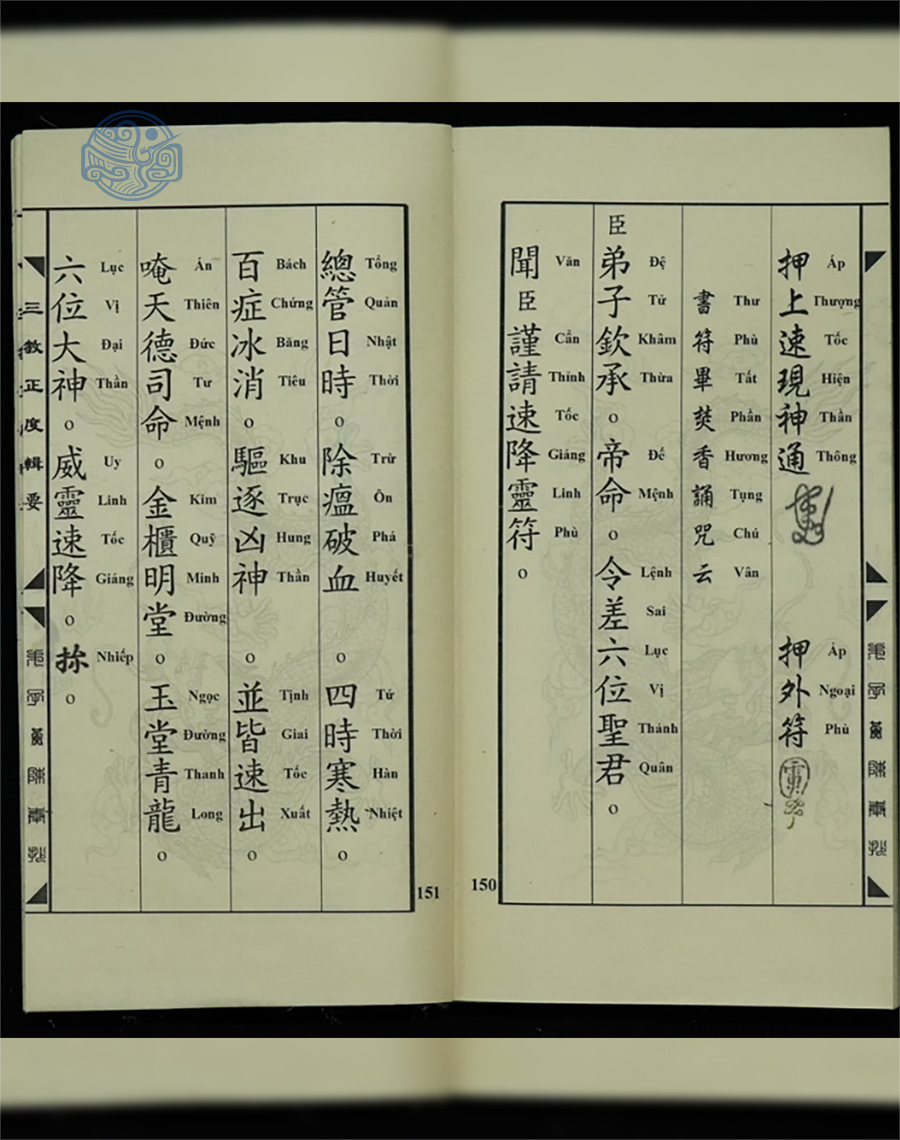 押上速現神通
Áp Thượng Tốc Hiện Thần Thông
押外符
Áp Ngoại Phù
書符畢焚香誦咒云
Thư Phù Tất Phần Hương Tụng Chú Vân
臣弟子欽承。帝命。令差六位聖君。
Đệ Tử Khâm Thừa Đế Mệnh Lệnh Sai Lục Vị Thánh Quân
聞臣謹請速降靈符。
Văn Cẩn Thỉnh Tốc Giáng Linh Phù
150
總管日時。除瘟破血。四時寒熱。
Tổng Quản Nhật Thời Trừ Ôn Phá Huyết Tứ Thời Hàn Nhiệt
百症冰消。驅逐凶神。並皆速出。
Bách Chứng Băng Tiêu Khu Trục Hung Thần Tịnh Giai Tốc Xuất
唵天德司命。金櫃明堂。玉堂青龍。
Án Thiên Đức Tư Mệnh Kim Quỹ Minh Đường Ngọc Đường Thanh Long
六位大神。威靈速降。
Lục Vị Đại Thần Uy Linh Tốc Giáng Nhiếp
三教正度輯要
151